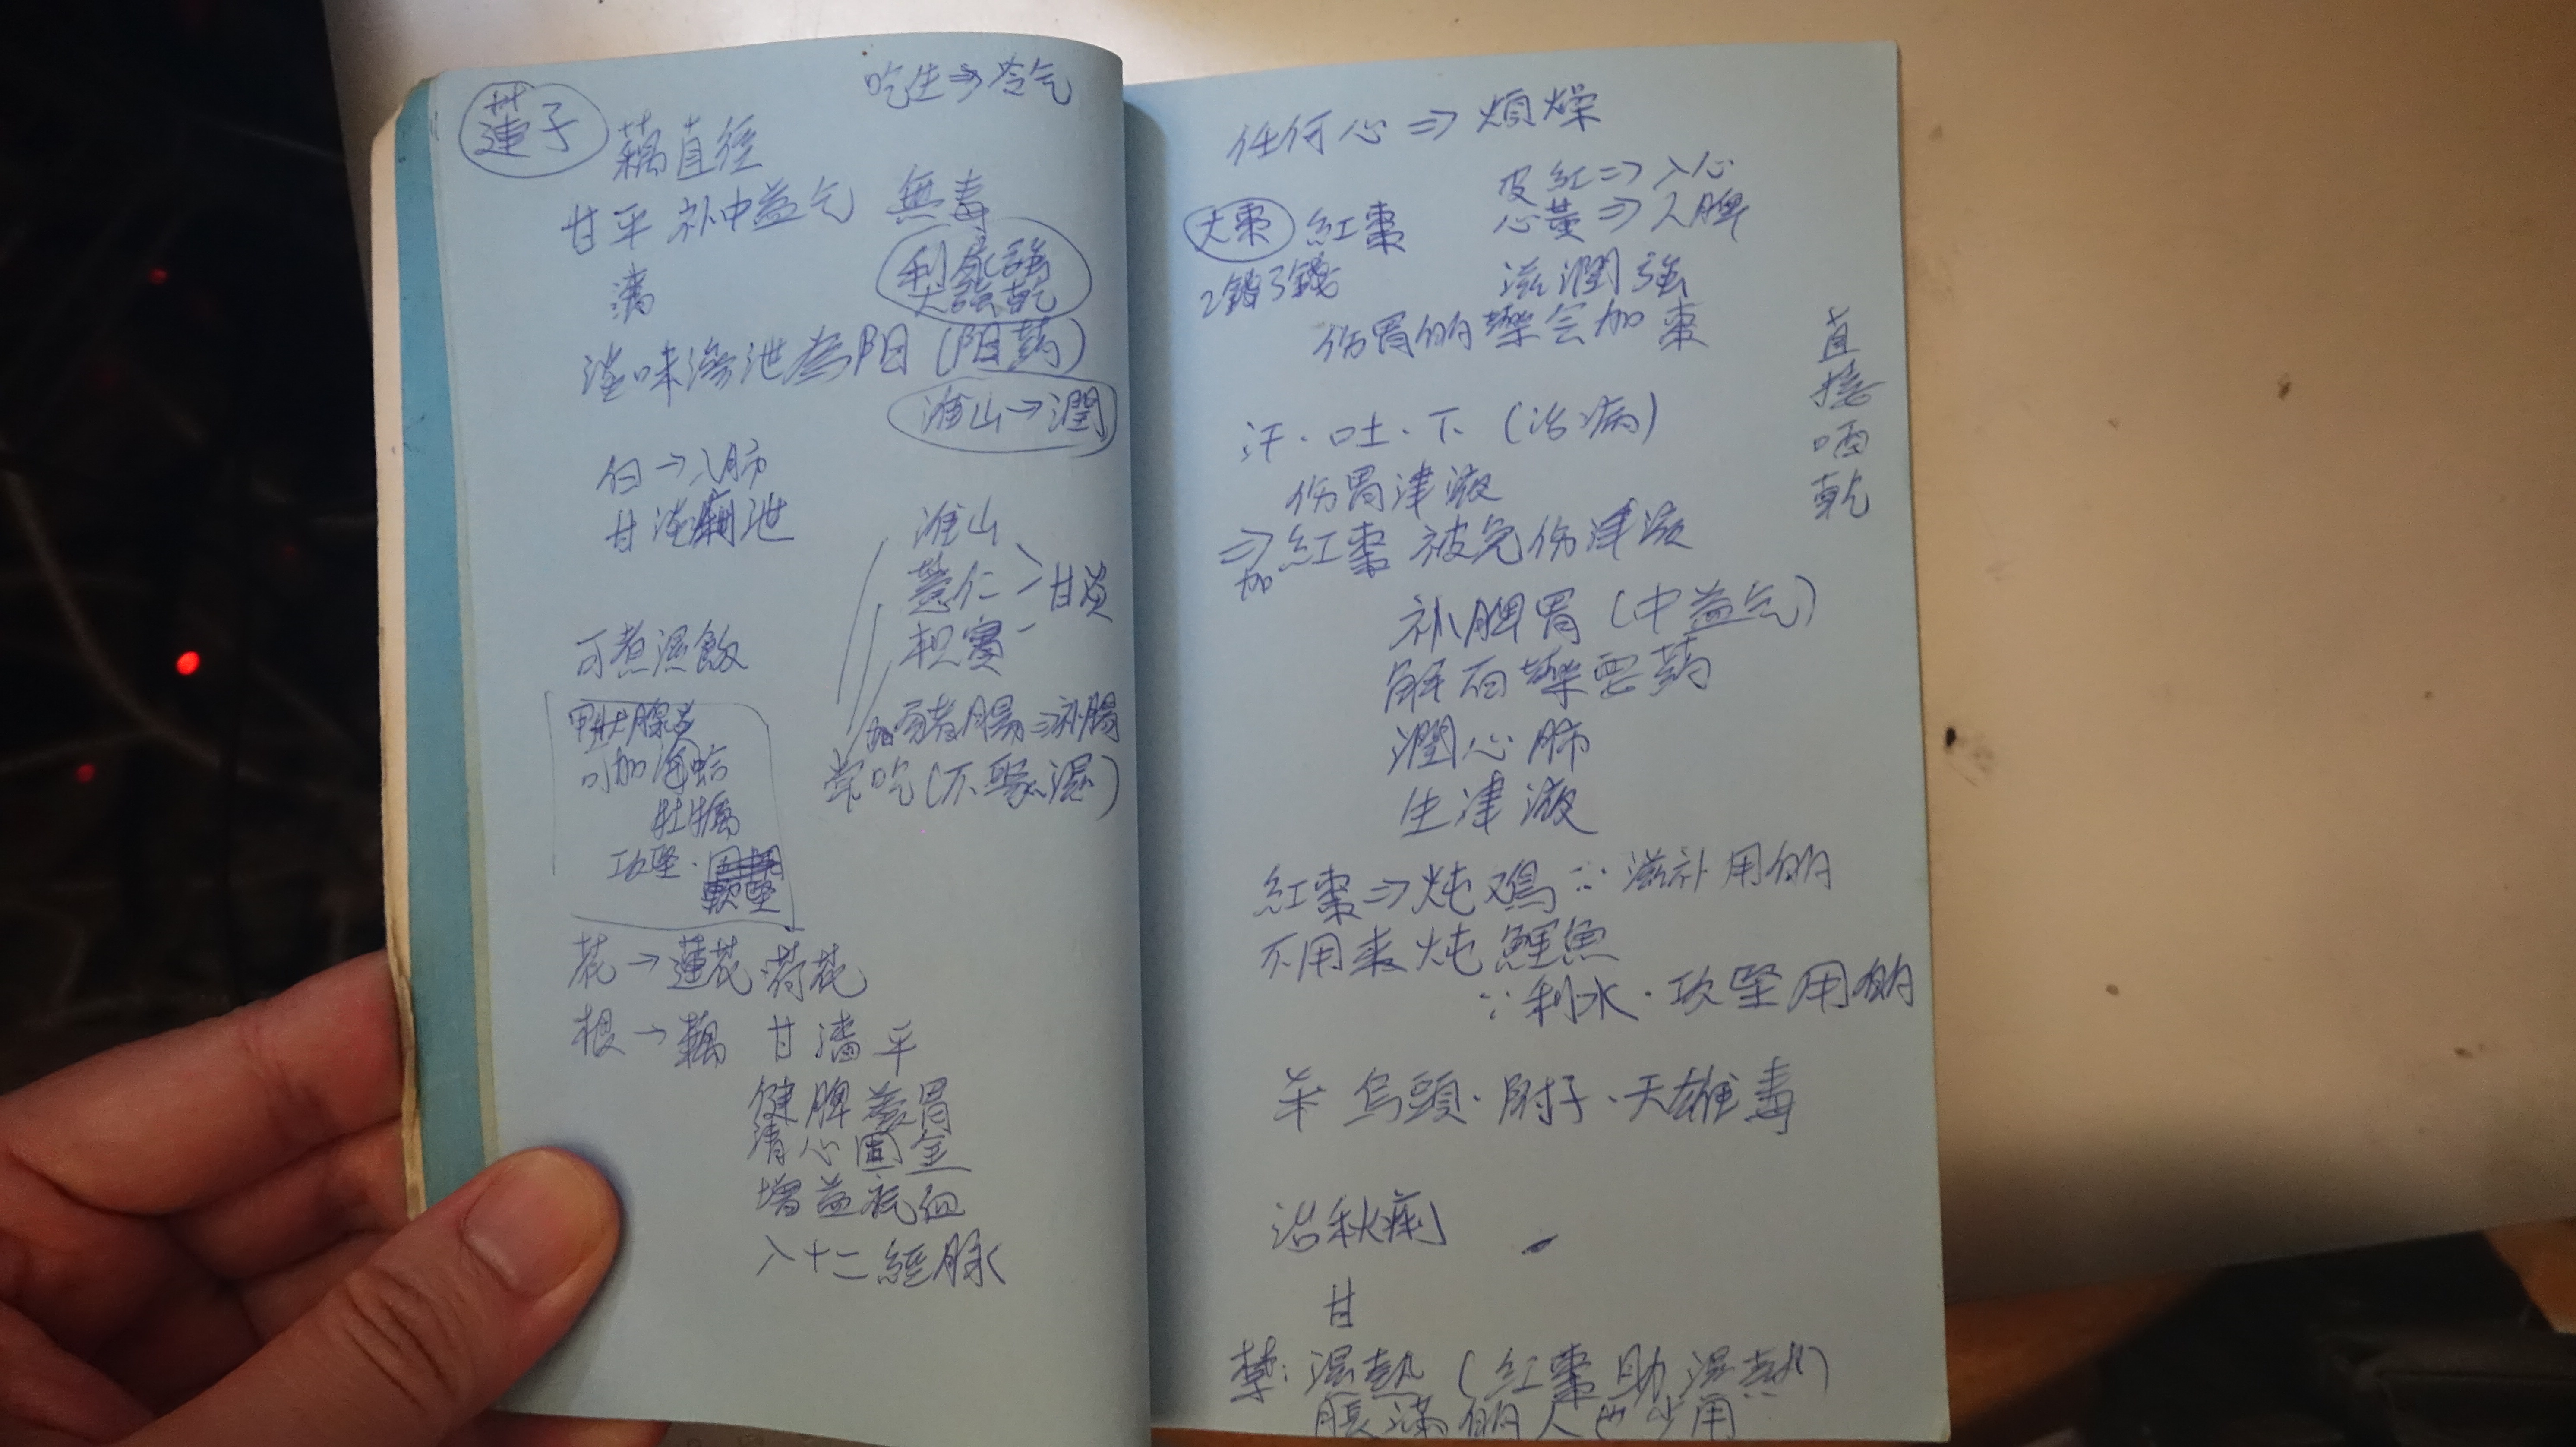 吃生⇒冷气
蓮子
藕直径
甘平 补中益气 無毒
利尿強
大談乾
淡味滲泄為阳(阳药)
淮山→潤
白→入肺
甘淡滲泄
淮山
薏仁
甘炎
可煮濕飯
加豬腸⇒补腸
常吃(不聚濕)
甲狀腺炎
可加海蛤
牡蠣
攻坚·
軟坚
花→蓮花·荷花
根→藕 甘濇平
健脾養胃
清心固金
增益氣血
入十二經脉
任何心⇒煩燥
皮紅⇒入心
心黃⇒入脾
大棗 紅棗
2錢3錢
滋潤強
伤胃的藥会加棗
直
接
晒
乾
汗·吐·下(治病)
伤胃津液
⇒加紅棗 被免伤津液
补脾胃(中益气)
解百藥要药
潤心肺
生津液
紅棗⇒炖鸡∵滋补用的
不用来炖鯉魚
∵利水·攻坚用的
羊 烏頭·附子·天雄毒
治秋痢
甘
禁:濕熱(紅棗助濕熱)
脹满的人也少用